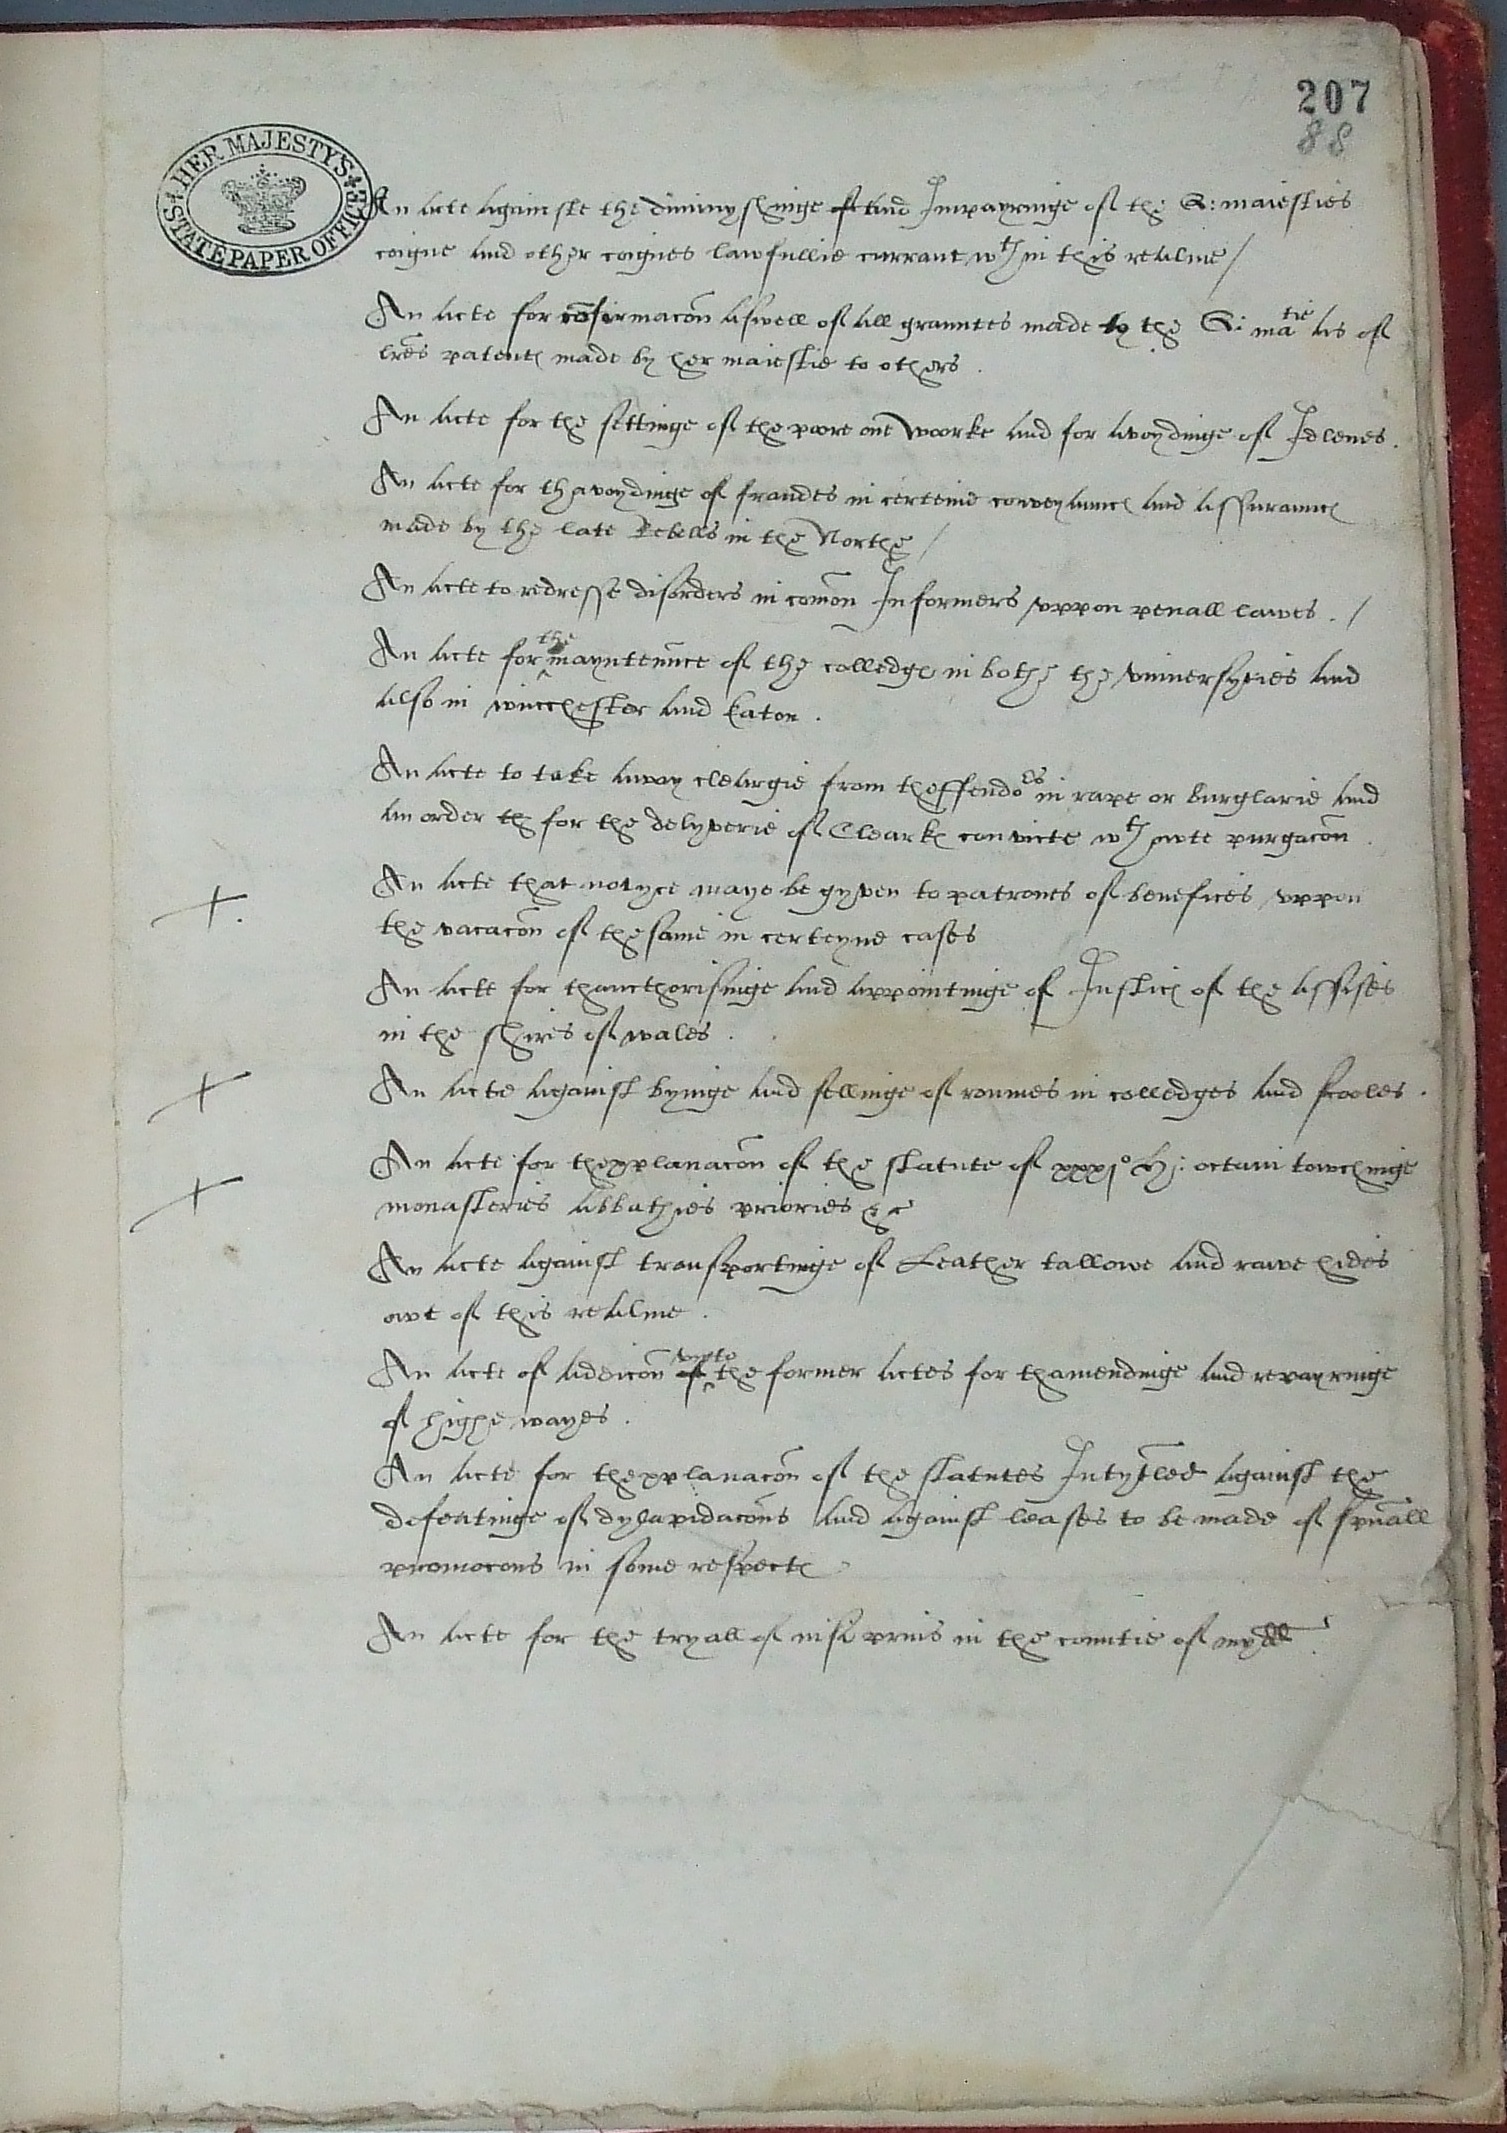 207
88
HER MAJESTY'S STATE PAPER OFFICE
An acte againste the diminyshinge of and Impayringe of the Q: maiesties
coigne and other coignes lawfullie currant wth in this realme /
An acte for cōfirmacōn aswell of all grauntes made to the Q: matie as of
lrēs patents made by her maiestie to others .
An acte for the settinge of the poore one woorke and for avoydinge of Idlenes .
An acte for thavoydinge of fraudes in certeine conveyaunces and assuraunces
made by the late Rebells in the Northe /
An acte to redresse disorders in comōn Informers vppon penall lawes . /
An acte for the mayntenn̄ce of the colledges in bothe the vniuersyties and
also in winchester and Eaton .
An acte to take away cleargie from theffendors in rape or burglarie and
an order th for the delyverie of Clearkes convicte wth owte purgacōn .
An acte that notyce maye be gyven to patrones of benefices vppon
the vacacōn of the same in certeyne cases
An acte for thaucthorisinge and appointinge of Justices of the assises
in the shires of wales .
An acte against byinge and sellinge of roumes in colledges and scooles .
An acte for thexplanacōn of the statute of xxxjo H: octaui towchinge
monasteries abbathies priories &c
An acte against transportinge of Leather tallowe and rawe hides
owt of this realme .
An acte of addicōn of vnto the former actes for thamendinge and repayringe
of highe wayes .
An acte for thexplanacōn of the statutes Intytled against the
defeatinge of dylapidacōns and against leases to be made of spūall
promocons in some respectes
An acte for the tryall of nisi prius in the countie of midd .